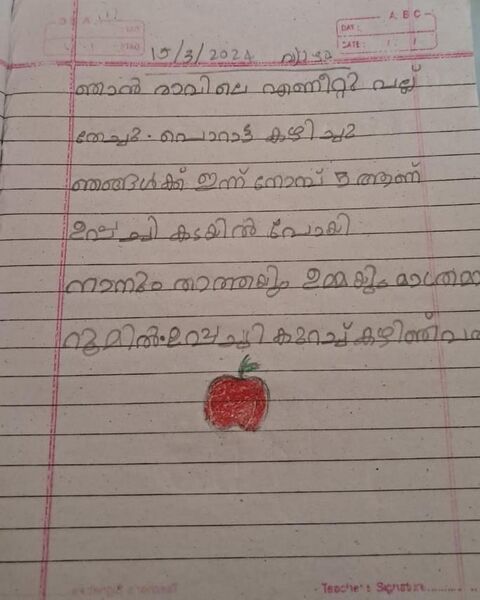 A B C
DAY :
DATE : / /
15/3/2024
ഞാൻ രാവിലെ എണീറ്റു പല്ല്
തേച്ചു. പൊറാട്ട കഴിച്ചു
ഞങ്ങൾക്ക് ഇന്ന് നോമ്പ് 5 ആണ്
ഉപ്പച്ചി കടയിൽ പോയി
ഞാനും താത്തയും ഉമ്മയും മാത്രമാ
റൂമിൽ. ഉപ്പച്ചി കുറച്ച് കഴിഞ്ഞ് വ
Teacher's Signature